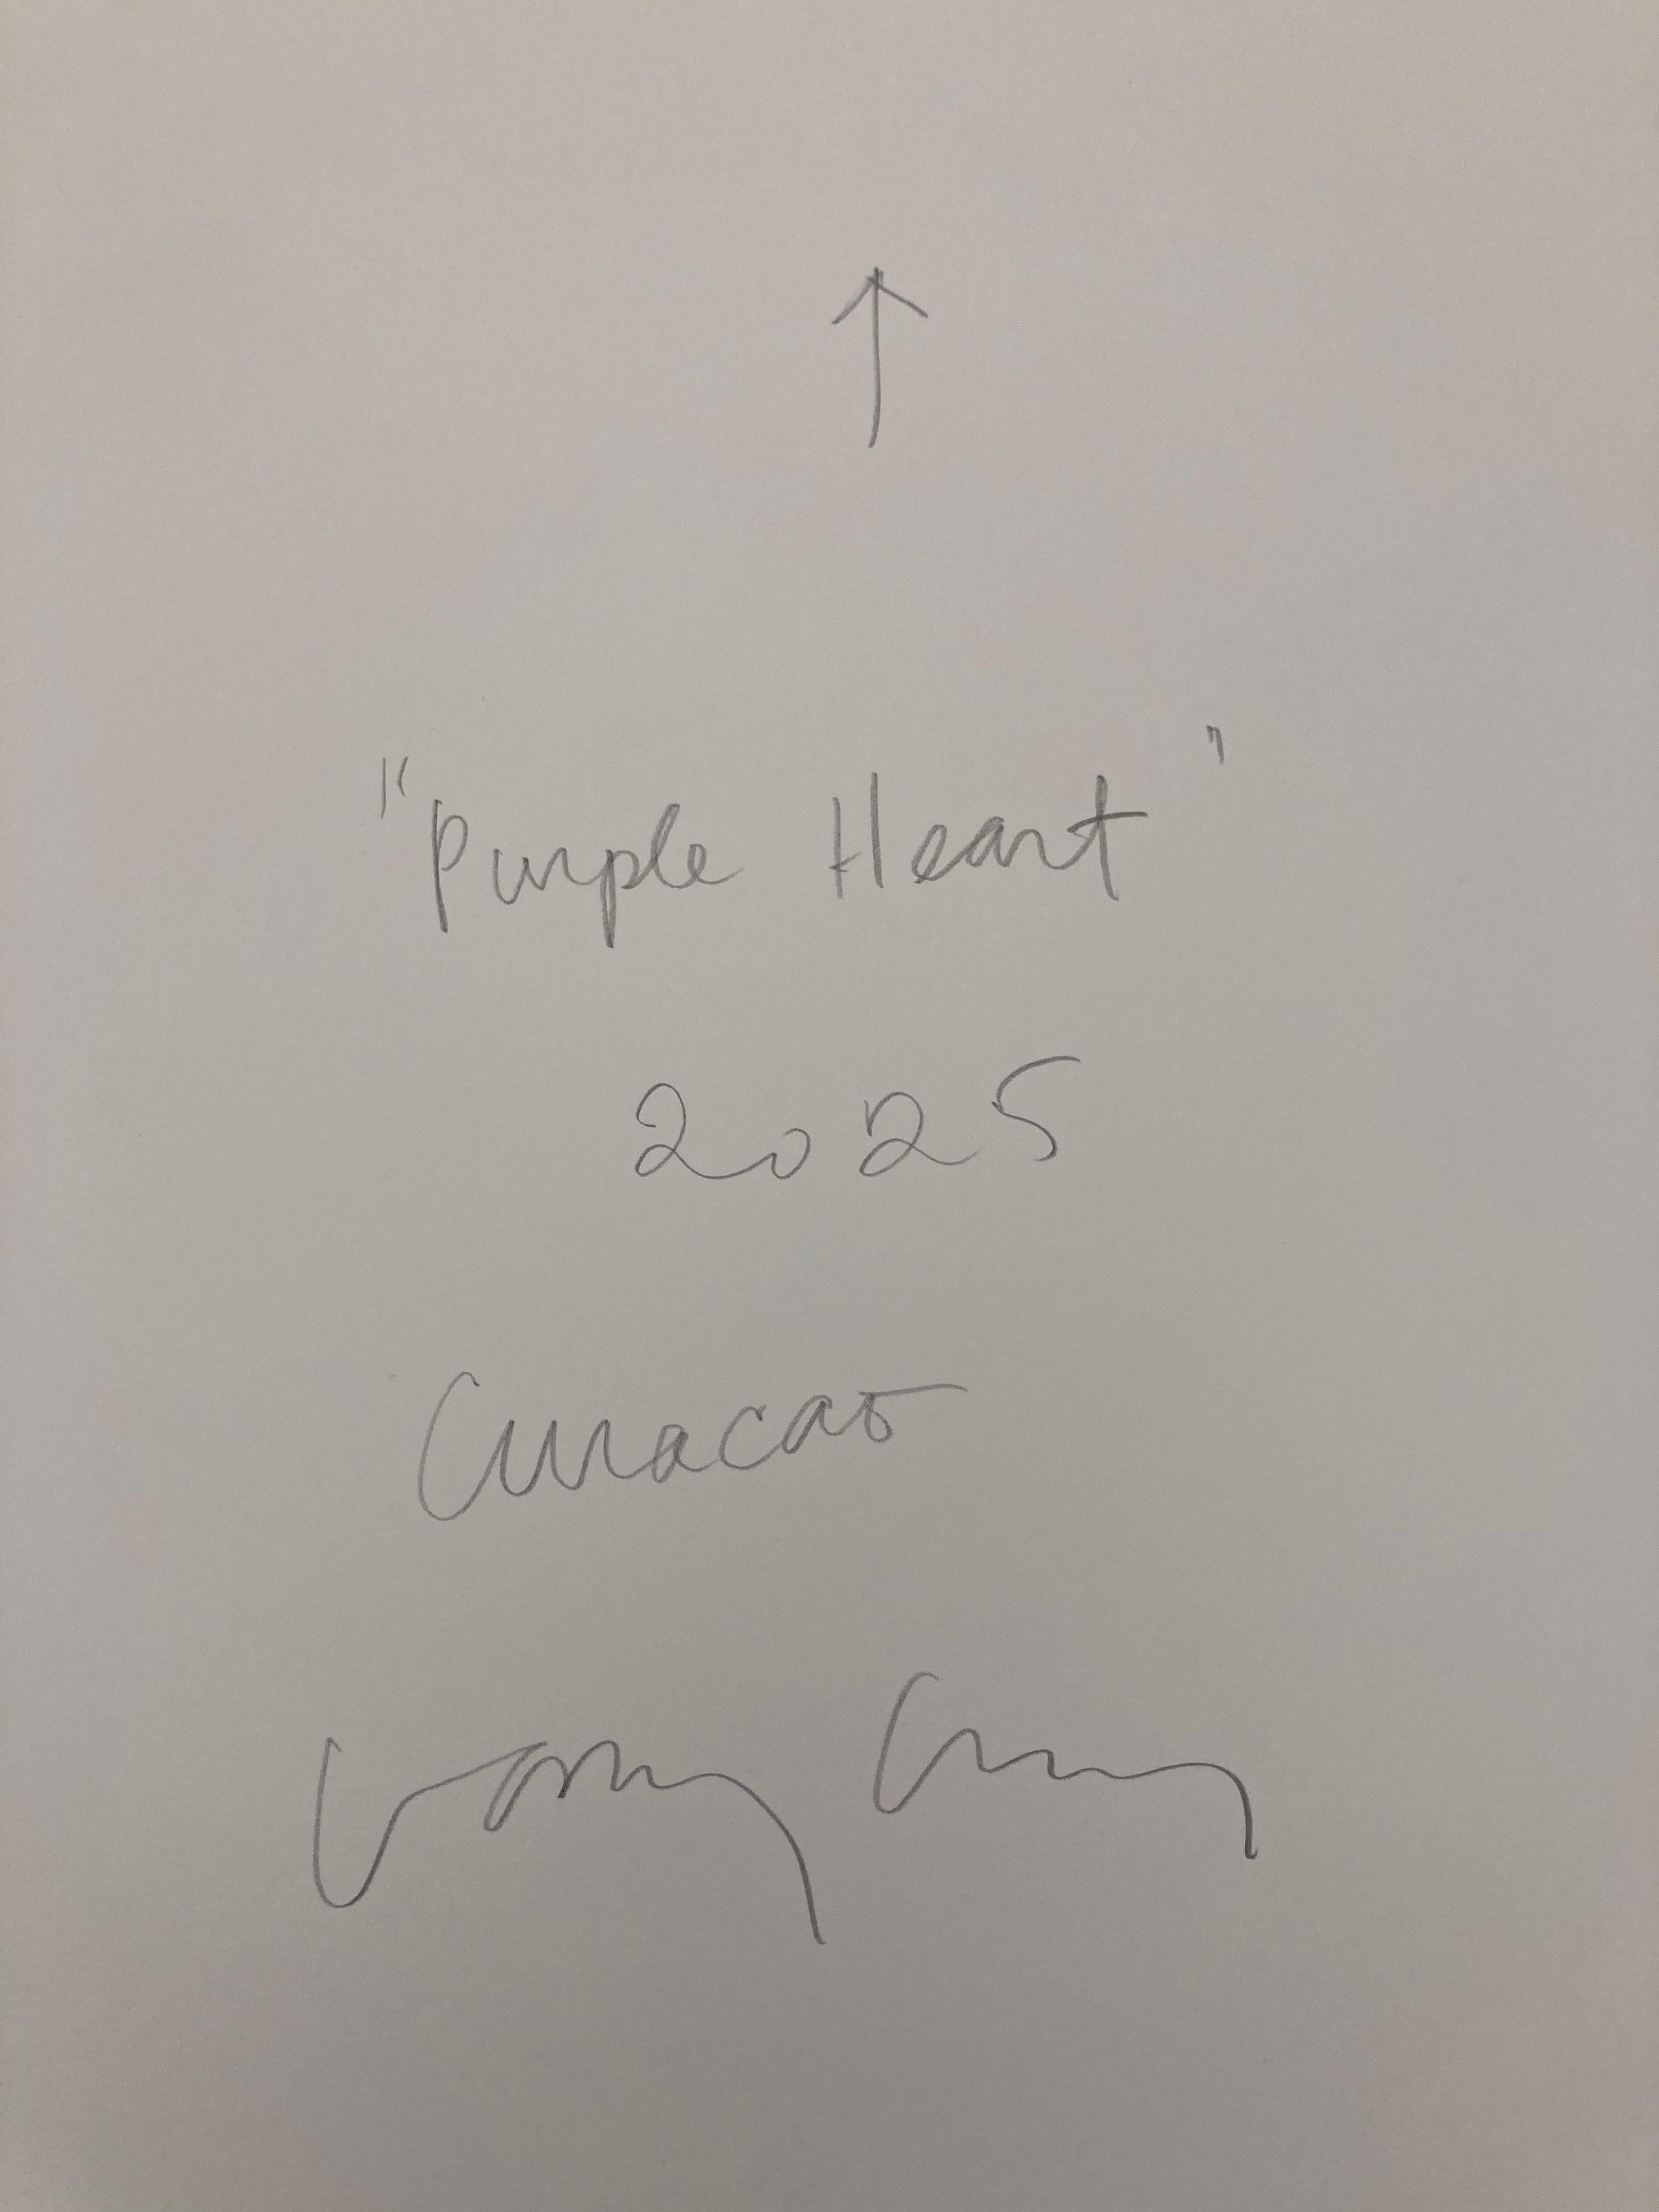 "Purple Heart"
2025
Curacao